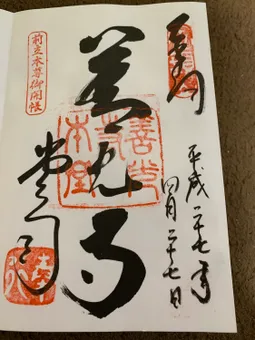 奉拝
平成二十七年
四月二十七日
善光寺
善光寺本堂
前立本尊御開帳
堂司